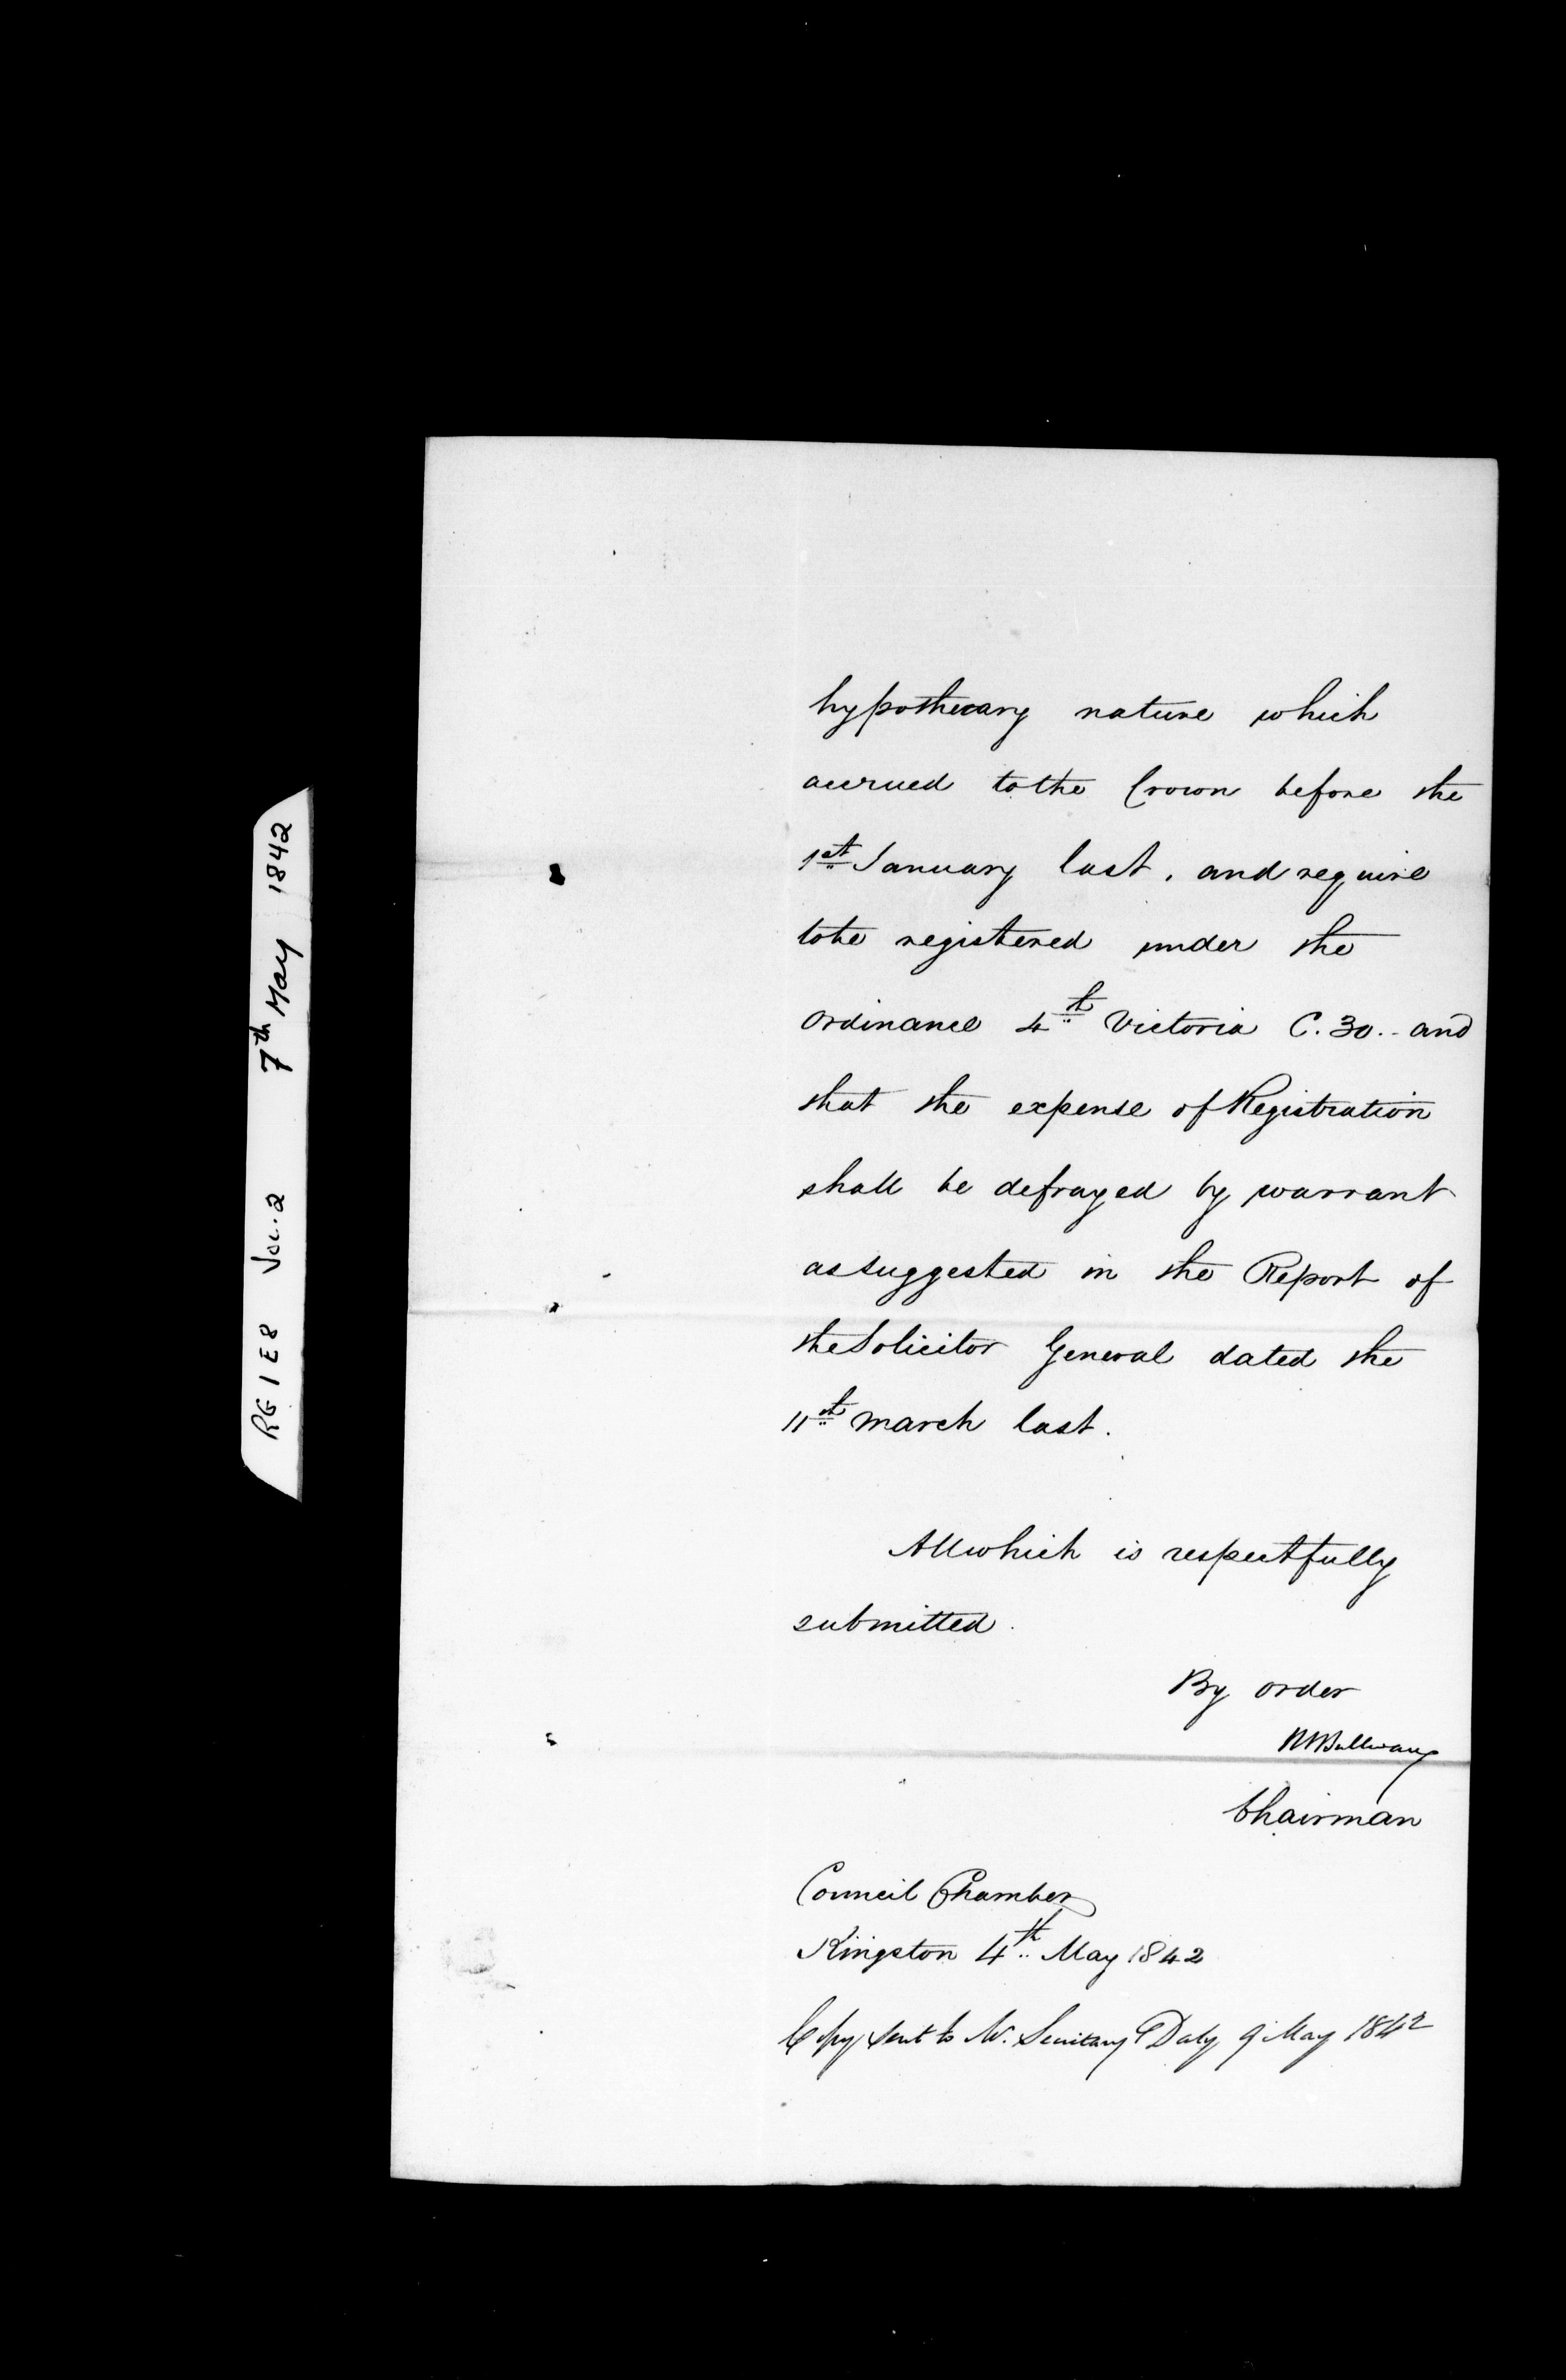 RG 1 E 8 Vol. 2 7th May 1842
hypothecary nature which
accrued to the Crown before the
1st January last, and require
to be registered under the
Ordinance 4th Victoria C. 30. and
that the expense of Registration
shall be defrayed by warrant
as suggested in the Report of
the Solicitor General dated the
11th March last.
All which is respectfully
submitted.
By order
Chairman
Council Chamber
Kingston 4th May 1842
Copy sent to Mr. Secretary Daly 9 May 1842